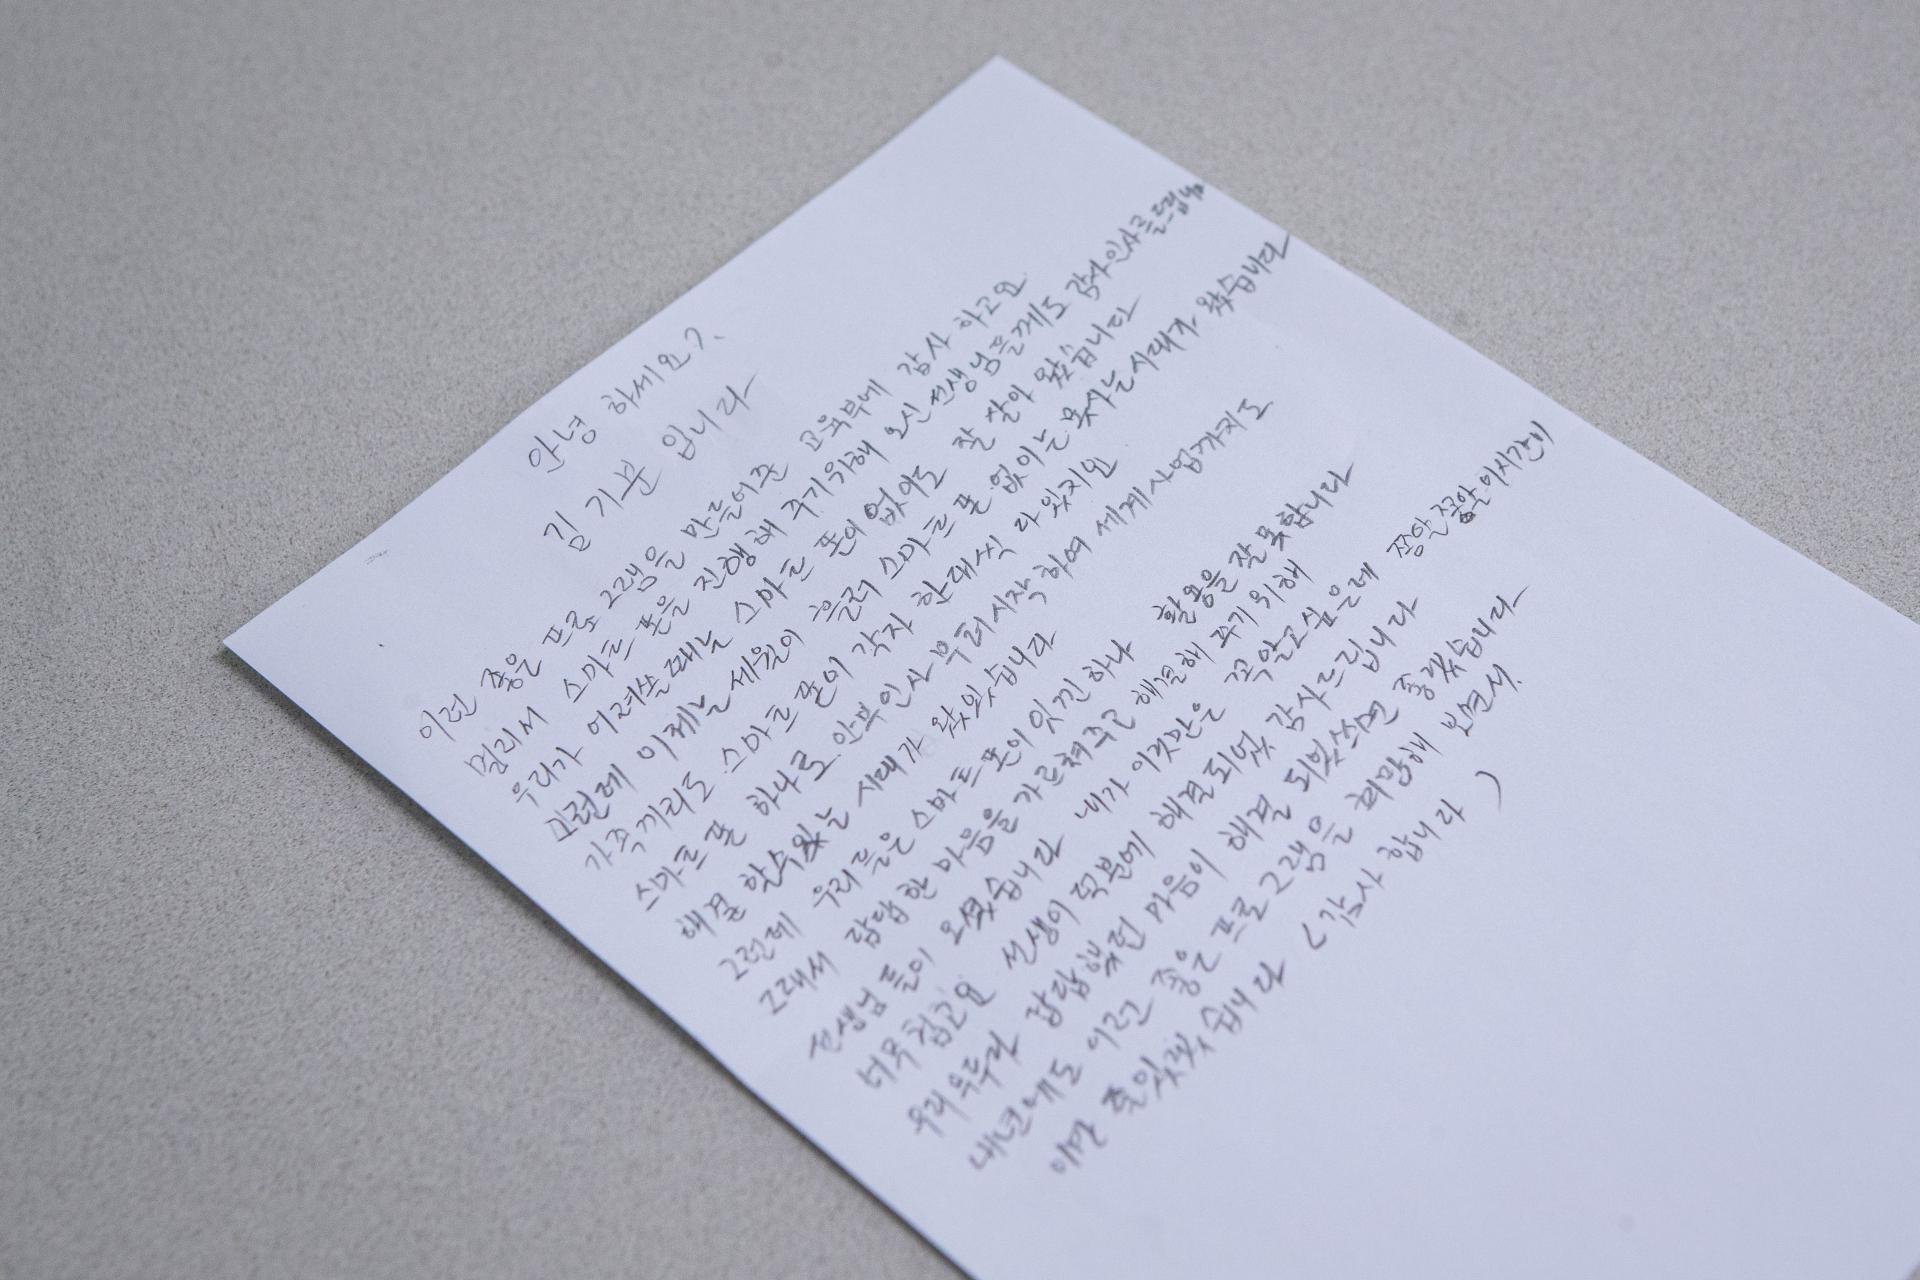 안녕 하세요?.
김 기분 입니다
이런 좋은 프로 그램을 만들어준 교육부에 감사 하고요
멀리서 스마트 폰을 진행해 주기위해 오신 선생님들께도 감사인사를드립니다
우리가 어려쓸때는 스마트 폰이 없이도 잘 살아 왔습니다
그런데 이제는 세월이 흘러 스마트 폰 없이는 못사는시대가 왔습니다
가족끼리도 스마트 폰이 각자 한대씩 다 있지만
스마트 폰 하나로 안부 인사 부터시작 하여 세계사업까지도
해결 할수있는 시대가 왔있습니다
그런데 우리들은 스마트 폰이 있긴 하나 활용을 잘 못합니다
그래서 답답한 마음을 가르쳐주고 해결해 주기위해
선생님 들이 오셨습니다 내가 이것만은 꼭알고싶은데 정말 이시간이
너무 고요 선생이 덕분에 해결되었 감사드립니다
우리 답답했던 마음이 해결 되었쓰면 좋겠습니다
내년에도 이런 좋은 프로 그램을 희망에 보면서.
이만 줄있겠습니다 (감사 합니다)